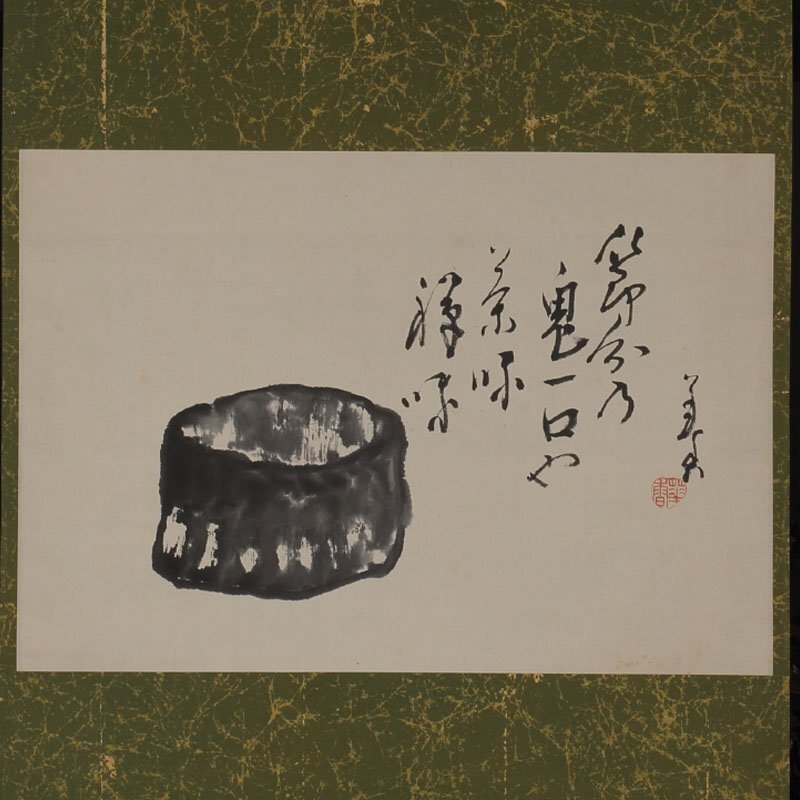 節分の
鬼一口や
茶味
禅味